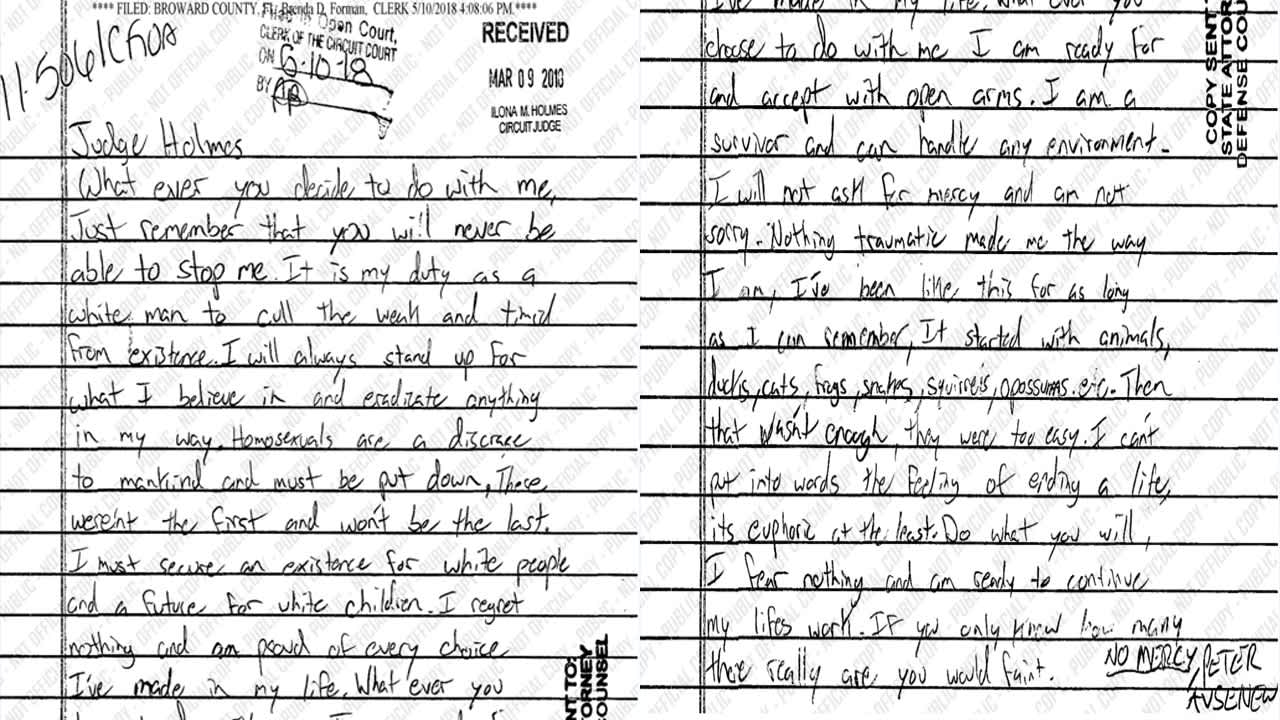 **** FILED: BROWARD COUNTY, FL Brenda D. Forman, CLERK 5/10/2018 4:08:06 PM.****
Filed In Open Court,
CLERK OF THE CIRCUIT COURT
ON 5-10-18
BY
RECEIVED
MAR 09 2018
ILONA M. HOLMES
CIRCUIT JUDGE
Judge Holmes
What ever you decide to do with me,
Just remember that you will never be
able to stop me. It is my duty as a
white man to cull the weak and timid
from existence. I will always stand up for
what I believe in and eradicate anything
in my way. Homosexuals are a discrace
to mankind and must be put down, These
were'nt the first and won't be the last.
I must secure an existence for white people
and a future for white children. I regret
nothing and am proud of every choice
I've made in my life. What ever you
NT TO:
TORNEY
COUNSEL
I've made in my life. What ever you
choose to do with me I am ready for
and accept with open arms. I am a
survivor and can handle any environment.
I will not ask for mercy and am not
sorry. Nothing traumatic made me the way
I am, I've been like this for as long
as I can remember, It started with animals,
ducks, cats, frogs, snakes, squirrels, opossums. etc. Then
that wasn't enough, they were too easy. I can't
put into words the feeling of ending a life,
its euphoric at the least. Do what you will,
I fear nothing and am ready to continue
my lifes work. If you only knew how many
there really are, you would faint.
NO MERCY, PETER
AVSENEW
COPY SENT
STATE ATTOR
DEFENSE COU